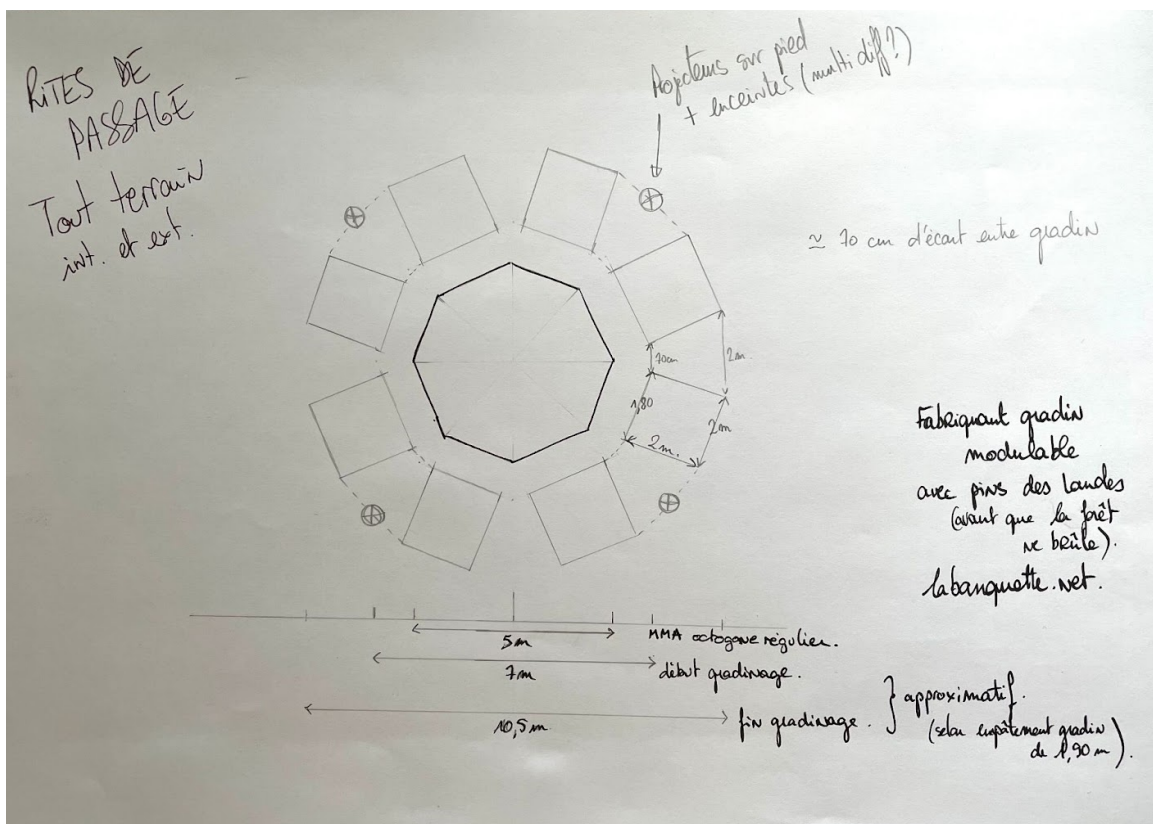 RITES DE
PASSAGE
Tout terrain
int. et ext.
Projecteurs sur pied
+ enceintes (multi diff?)
≃ 70 cm d'écart entre gradin
70cm
2m.
1,80
2m
2m.
Fabriquant gradin
modulable
avec pins des Landes
(avant que la forêt
ne brûle).
labanquette.net.
5m
MMA octogone régulier.
7m
début gradinage.
10,5m
fin gradinage.
} approximatif.
(selon empâtement gradin
de 1,90 m).